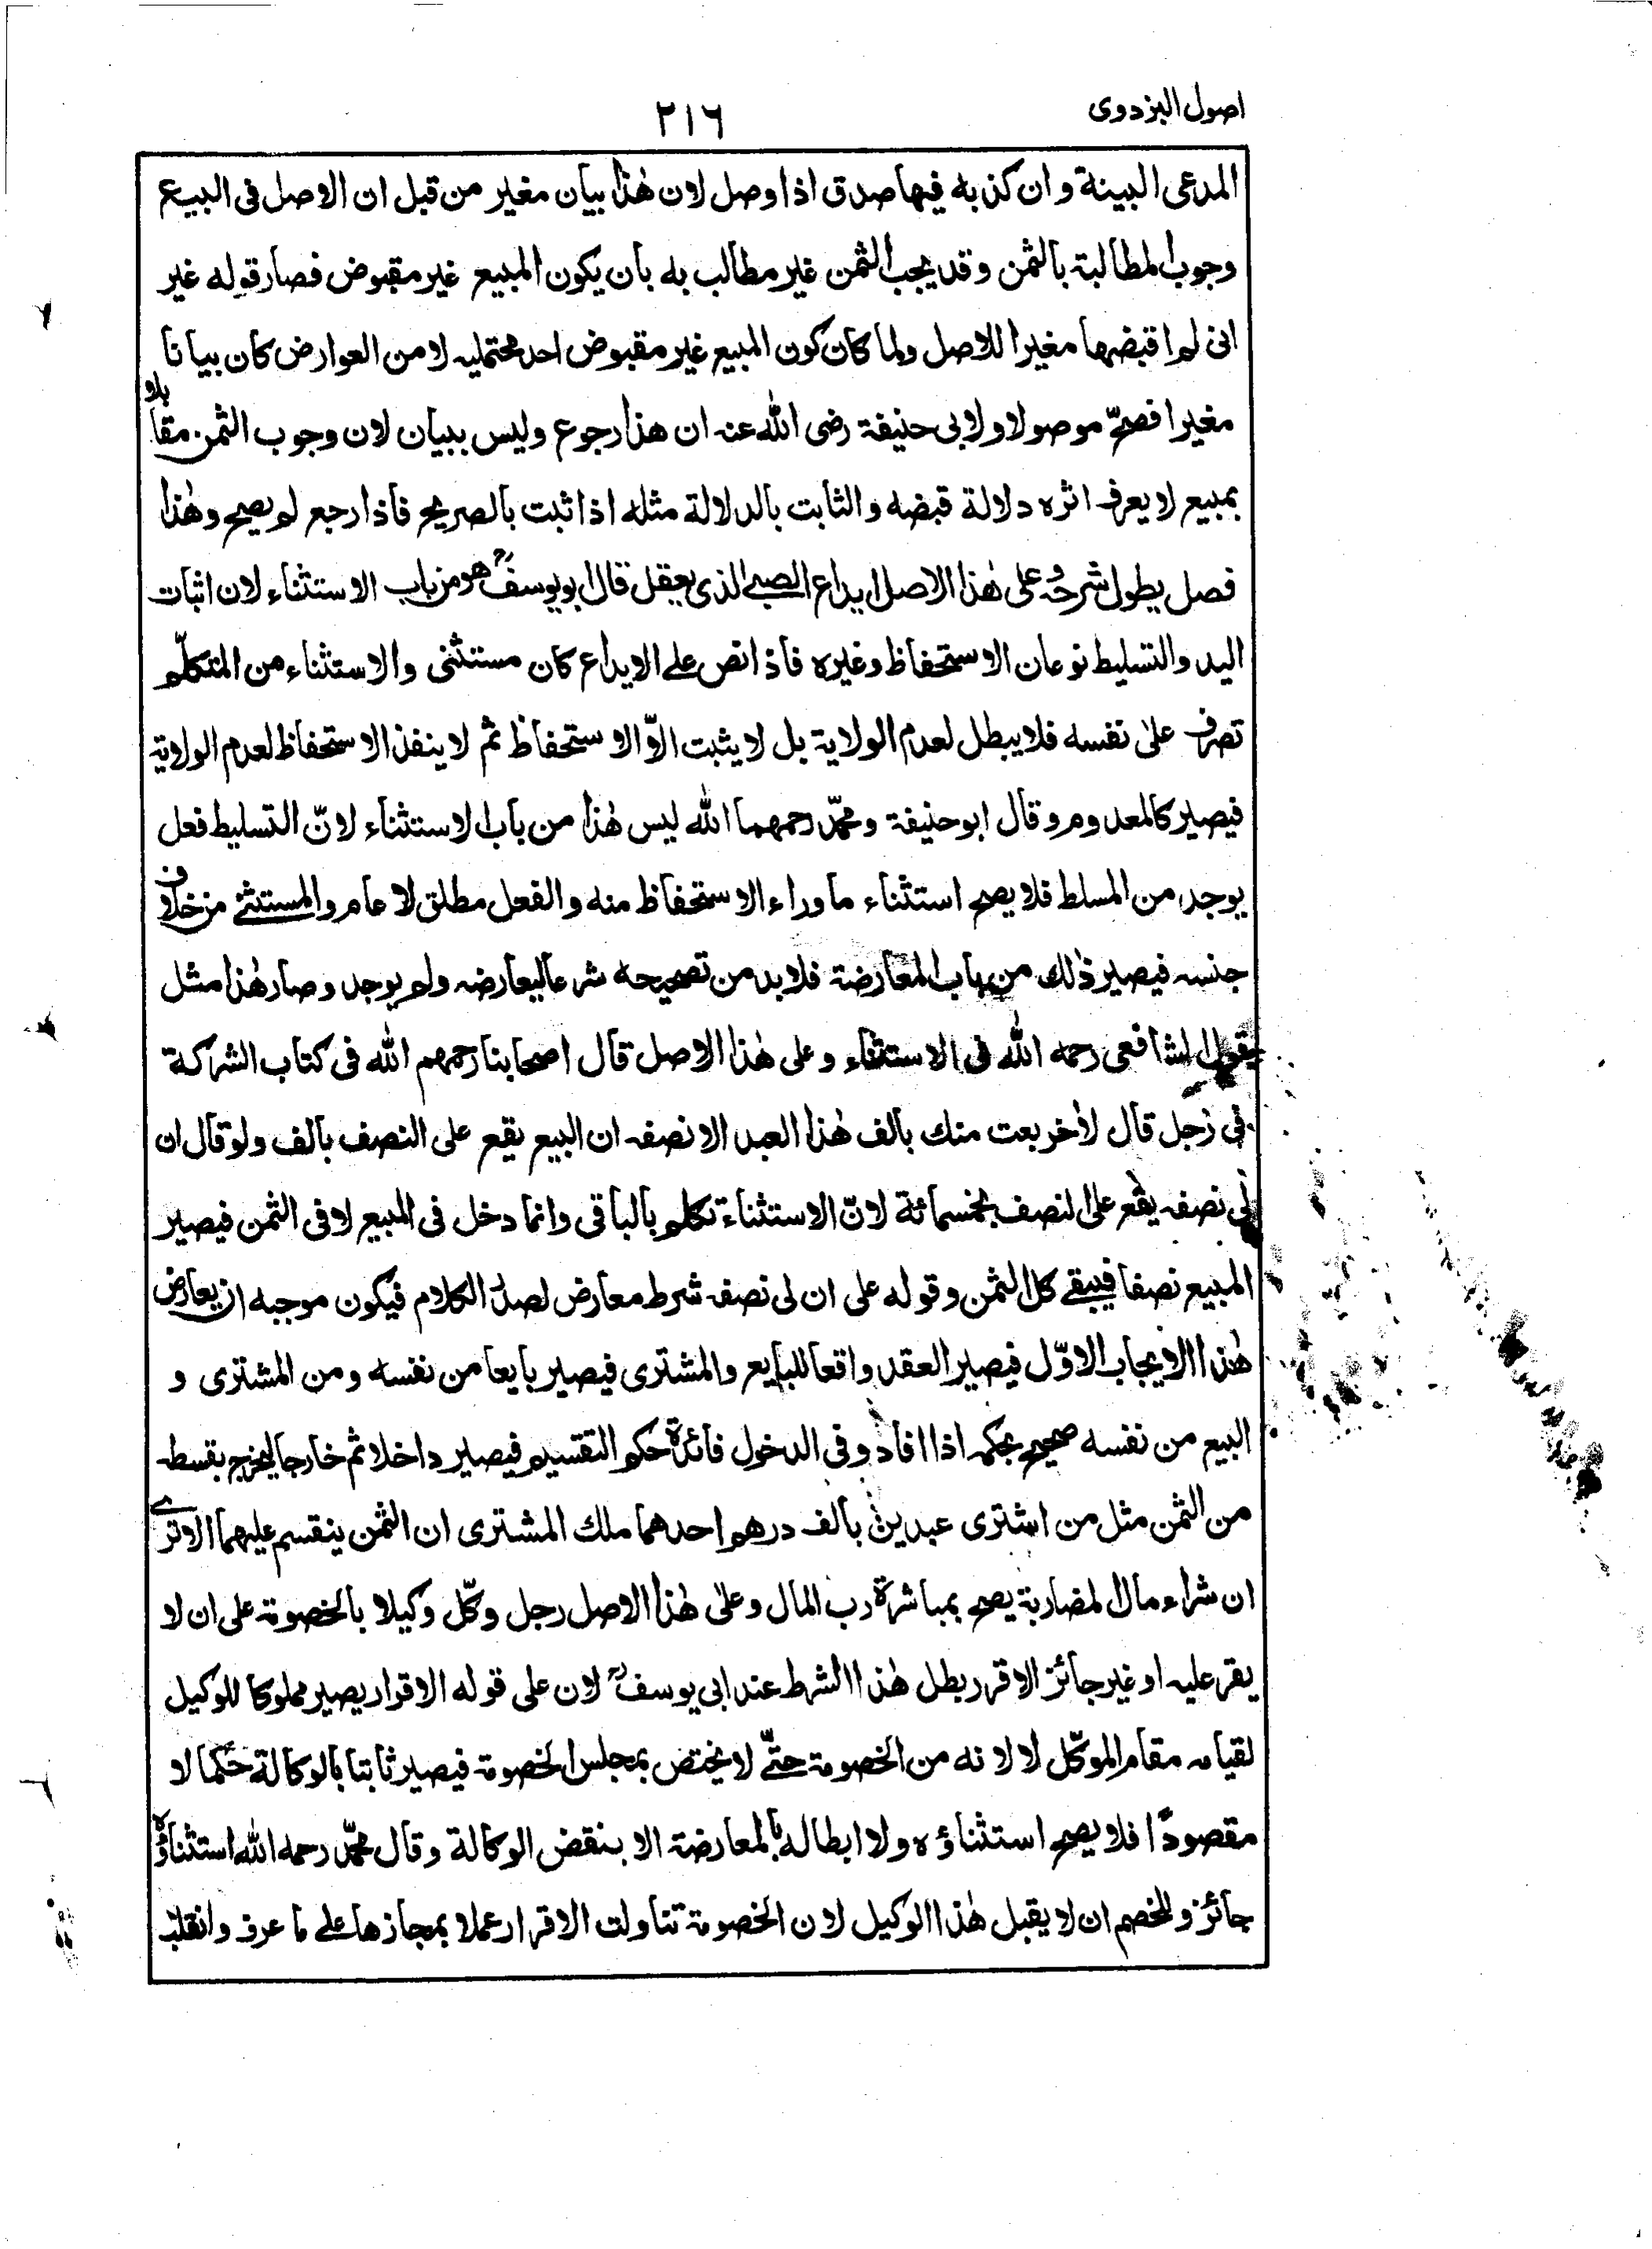 اصول البزدوى
٢١٦
المدعى البينة وان كذبه فيها صدق اذا وصل لان هٰذا بيان مغير من قبل ان الاصل فى البيع
وجوب المطالبة بالثمن وقد يجب الثمن غير مطالب به بان يكون المبيع غير مقبوض فصار قوله غير
انى لم اقبضها مغيرا للاصل ولما كان كون المبيع غير مقبوض احد محتمليه لا من العوارض كان بيانا
مغيرا فصحّ موصولا ولابى حنيفة رضى الله عنه ان هذا رجوع وليس ببيان لان وجوب الثمن مقابلا
بمبيع لا يعرف اثره دلالة قبضه والثابت بالدلالة مثله اذا ثبت بالصريح فاذا رجع لم يصح وهٰذا
فصل يطول شرحهٗ وعلى هٰذا الاصل ايداع الصبى الذى يعقل قال ابو يوسفؒ هو من باب الاستثناء لان اثبات
اليد والتسليط نوعان الاستحفاظ وغيره فاذا نص على الايداع كان مستثنى والاستثناء من المتكلّم
تصرف علىٰ نفسه فلا يبطل لعدم الولاية بل لا يثبت الاّ الاستحفاظ ثم لا ينفذ الاستحفاظ لعدم الولاية
فيصير كالمعدوم وقال ابو حنيفة ومحمّد رحمهما الله ليس هٰذا من باب الاستثناء لانّ التسليط فعل
يوجد من المسلط فلا يصح استثناء ما وراء الاستحفاظ منه والفعل مطلق لا عام والمستثنى من خلاف
جنسه فيصير ذٰلك من باب المعارضة فلا بد من تصحيحه شرعا ليعارضه ولم يوجد وصار هٰذا مثل
يقول الشافعى رحمه الله فى الاستثناء وعلى هٰذا الاصل قال اصحابنا رحمهم الله فى كتاب الشركة
فى رجل قال لاٰخر بعت منك بالف هٰذا العبد الا نصفه ان البيع يقع على النصف بالف ولو قال ان
لى نصفه يقع على النصف بخمسمائة لانّ الاستثناء تكلم بالباقى وانما دخل فى المبيع لا فى الثمن فيصير
المبيع نصفا فيبقى كل الثمن وقوله على ان لى نصفه شرط معارض لصدر الكلام فيكون موجبه ان يعارض
هٰذا الايجاب الاوّل فيصير العقد واقعا للبايع والمشترى فيصير بايعا من نفسه ومن المشترى و
البيع من نفسه صحيح بحكمه اذا افاد وفى الدخول فائدة حكم التقسيم فيصير داخلا ثم خارجا ليخرج بقسطه
من الثمن مثل من اشترى عبدين بالف درهم احدهما ملك المشترى ان الثمن ينقسم عليهما الا ترى
ان شراء مال المضاربة يصح بمباشرة رب المال وعلىٰ هٰذا الاصل رجل وكّل وكيلا بالخصومة على ان لا
يقر عليه او غير جائز الاقرر بطل هٰذا الشرط عند ابى يوسفؒ لان على قوله الاقرار يصير مملوكا للوكيل
لقيامه مقام الموكّل لا لانه من الخصومة حتّى لا يختص بمجلس الخصومة فيصير ثابتا بالوكالة حكما لا
مقصودًا فلا يصح استثناؤه ولا ابطاله بالمعارضة الا بنقض الوكالة وقال محمّد رحمه الله استثناؤه
جائز وللخصم ان لا يقبل هٰذا الوكيل لان الخصومة تناولت الاقرار عملا بمجازها على ما عرف وانقلب